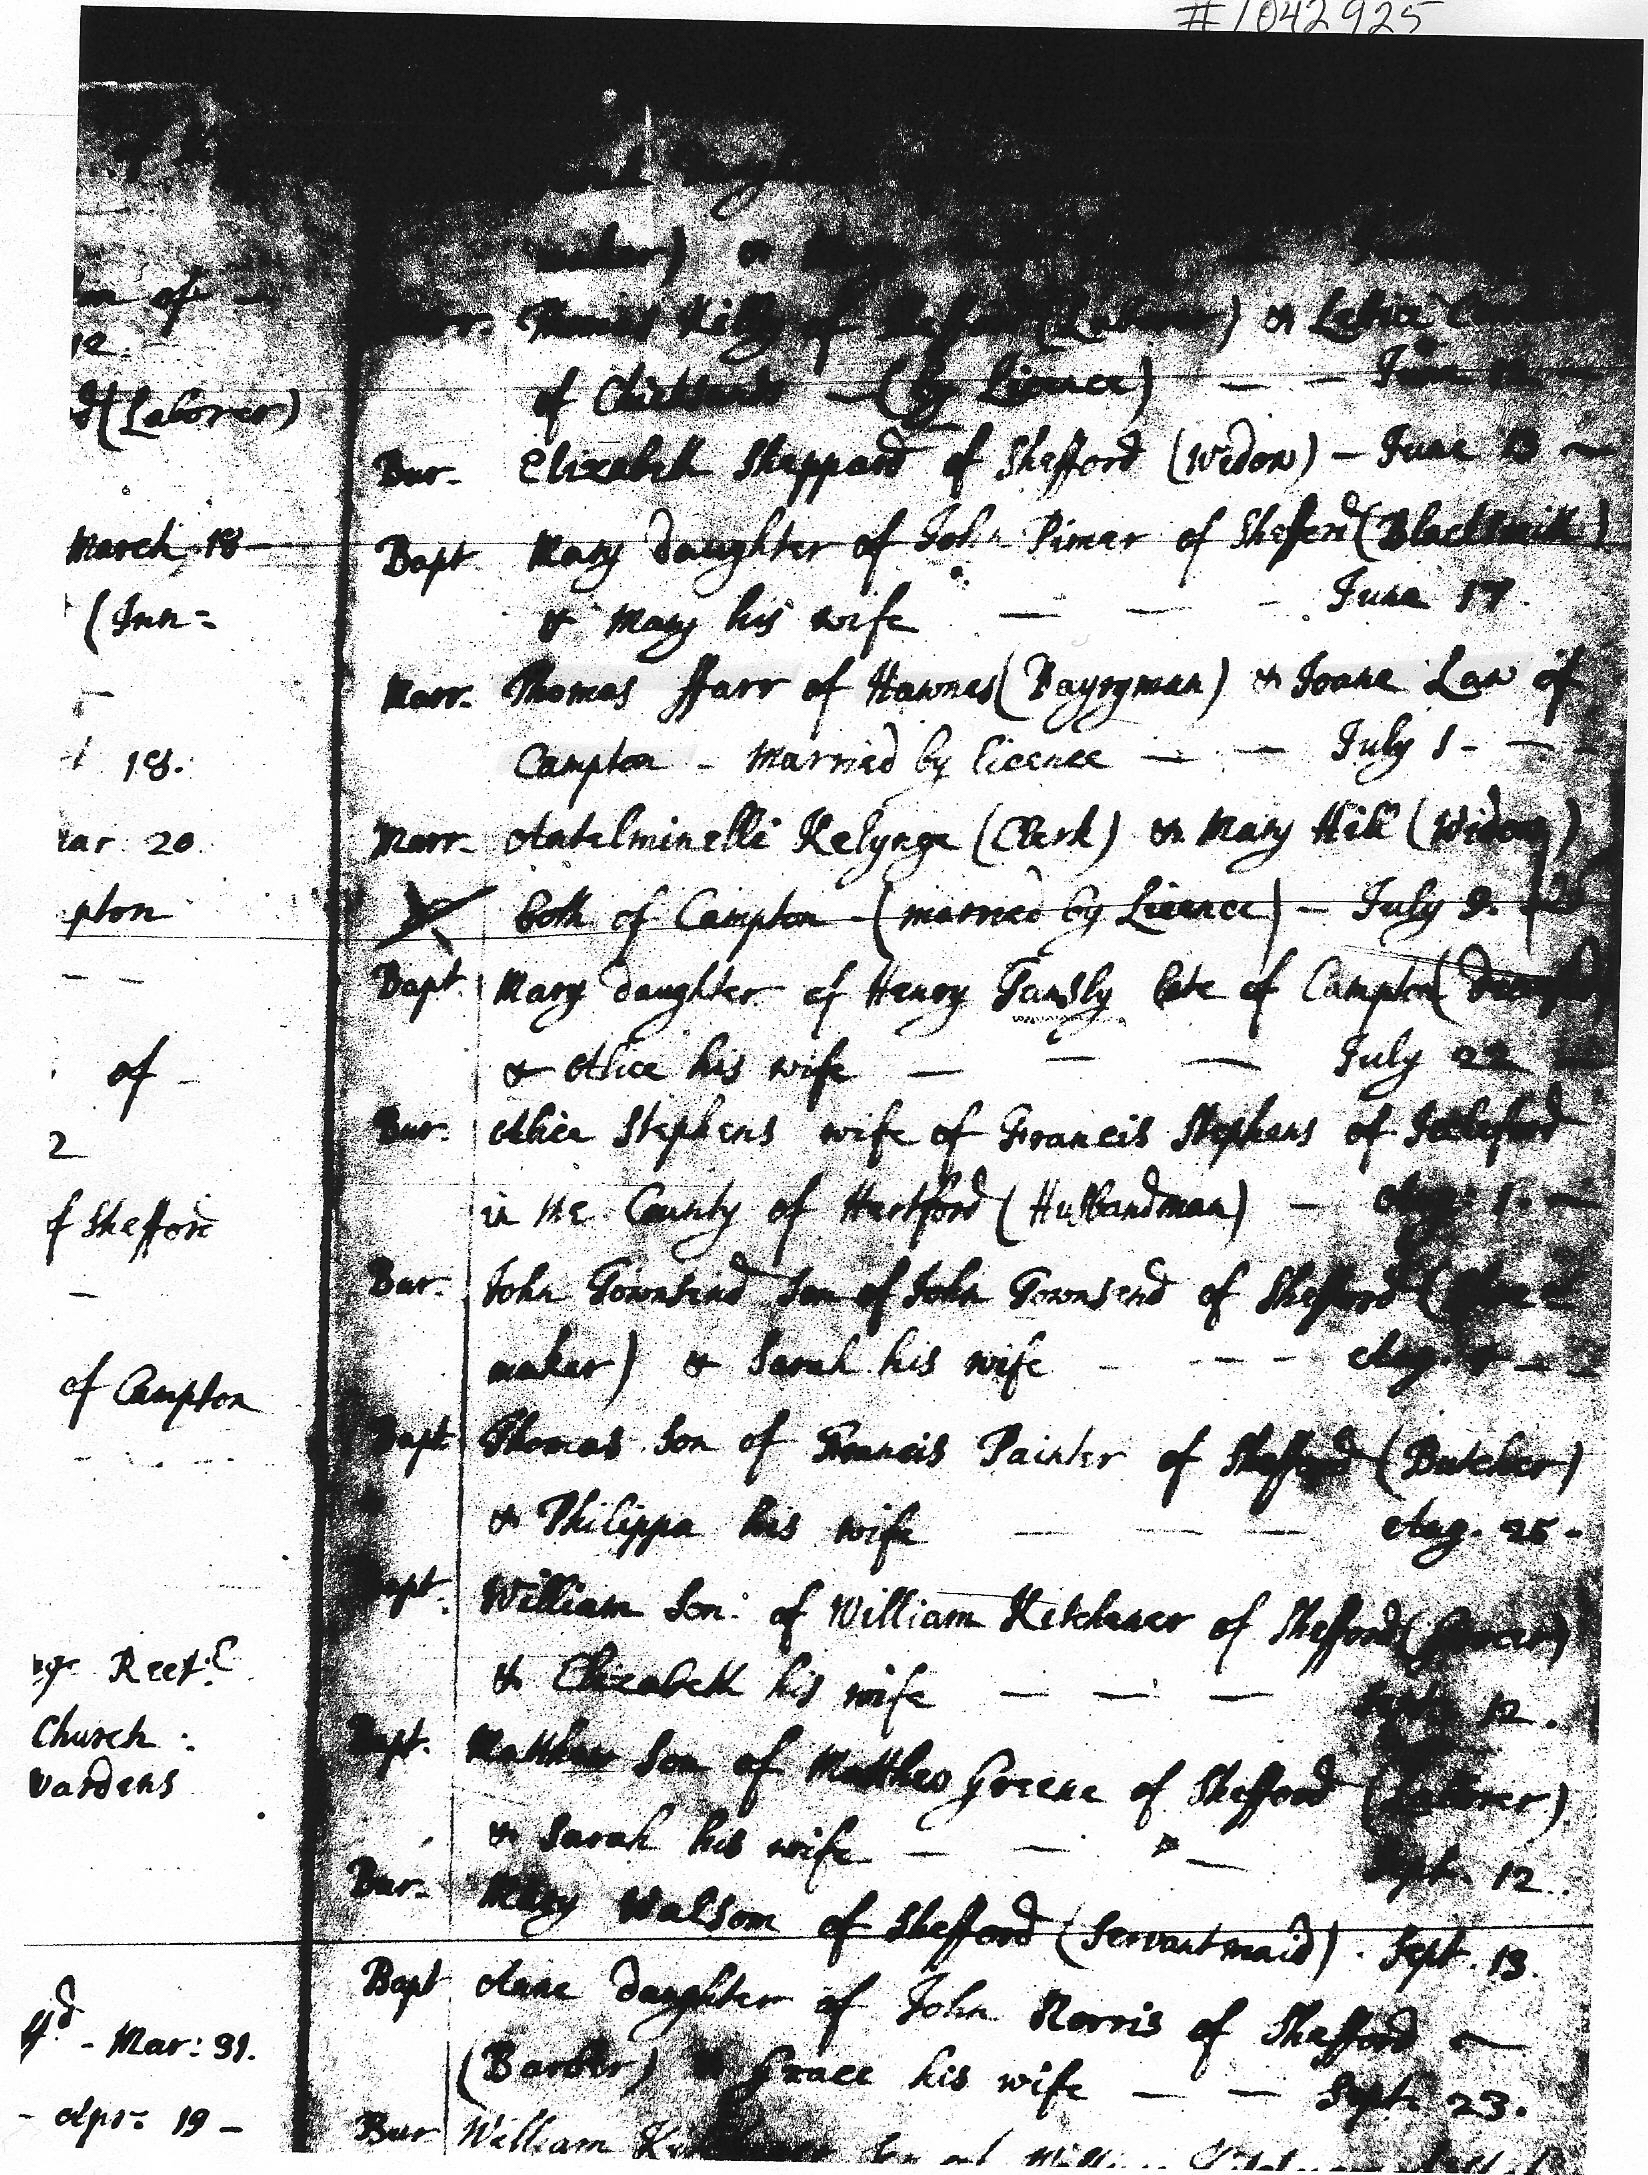 #1042925
daugh
maker) &
of
Marr. Thomas of (Laborer) & Letice
12.
of (by Licence) — — June 12 —
(Laborer)
Bur. Elizabeth Sheppard of Shefford (Widow) — June 13 —
March 18 —
Bapt Mary daughter of John Pimer of Shefford (Blacksmith)
(Inn=
& Mary his wife — — - June 17.
Marr. Thomas ffarr of Hawnes (Dayryman) & Joane Law of
18.
Campton - Married by licence — — July 1 - —
Mar. 20.
Marr. Antelminelli Kelynge (Clerk) & Mary Hill (Widow)
pton
both of Campton - (married by Licence) — July 9.
— —
Bapt Mary daughter of Henry Tansly late of Campton (deceased)
of -
& Alice his wife — — — July 22 —
2
Bur. Alice Stephens wife of Francis Stephens of
f Shefford
in the County of Hartford (Husbandman) — Aug. 1. —
—
Bur. John Townsend Son of John Townsend of Shefford
of Campton
maker) & Sarah his wife - - - - Aug. —
Bapt Thomas Son of Francis Painter of Shefford (Butcher)
& Philippa his wife — — — Aug. 25 -
Bapt. William Son of William Kitchener of Shefford (Grocer)
Rect.
& Elizabeth his wife — — — Sept. 12.
Church :
wardens
Bapt. Matthew Son of Matthew Greene of Shefford (Laborer)
& Sarah his wife — — — Sept. 12.
Bur. Mary Walsom of Shefford (Servantmaid). Sept. 13.
Bapt Anne daughter of John Norris of Shefford —
- Mar: 31.
(Barber) & Grace his wife — — Sept. 23.
- Apr: 19 -
Bur William Son of